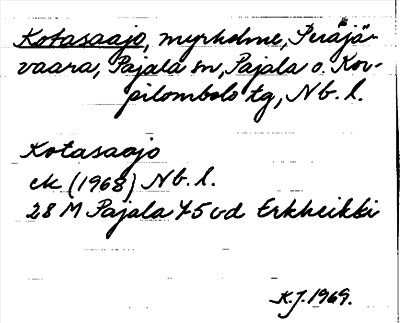 Kotasaajo, myrholme, Peräjä-
vaara, Pajala sn, Pajala o. Kor-
pilombolo tg, Nb. l.
Kotasaajo
ek (1968) Nb. l.
28 M Pajala 45 vd Erkheikki
K.J. 1969.